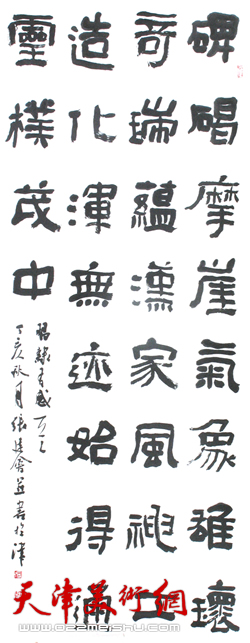 碑碣摩崖氣象雄瓌
奇瑞蘊漢家風神工
造化渾無迹始得
靈樸茂中
習隸有感
丁亥秋月張建會並書於津
天津美術網
www.022meishu.com